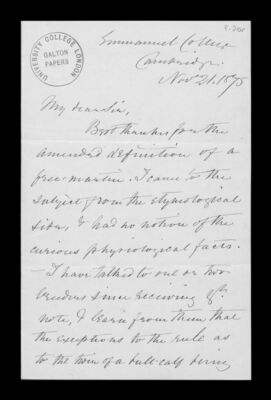 UNIVERSITY COLLEGE LONDON
GALTON
PAPERS
Emmanuel College
Cambridge.
Nov. 21. 1875
My dear Sir,
Best thanks for the
amended definition of a
free-martin. I came to the
subject from the etymological
side, & had no notion of the
curious physiological facts.
I have talked to one or two
breeders since receiving yr.
note, & learn from them that
the exceptions to the rule as
to the twin of a bull-calf being